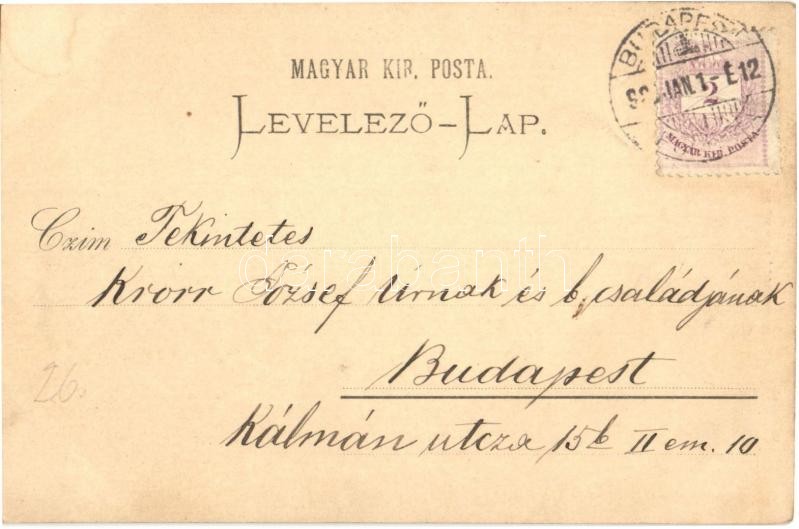 MAGYAR KIR. POSTA.
LEVELEZŐ-LAP.
BUDAPEST
JAN. 1
MAGYAR KIR. POSTA
Czim Tekintetes
Krorr József Úrnak és b. családjának
Budapest
Kálmán utcza 15b II em. 10
26.
darabanth